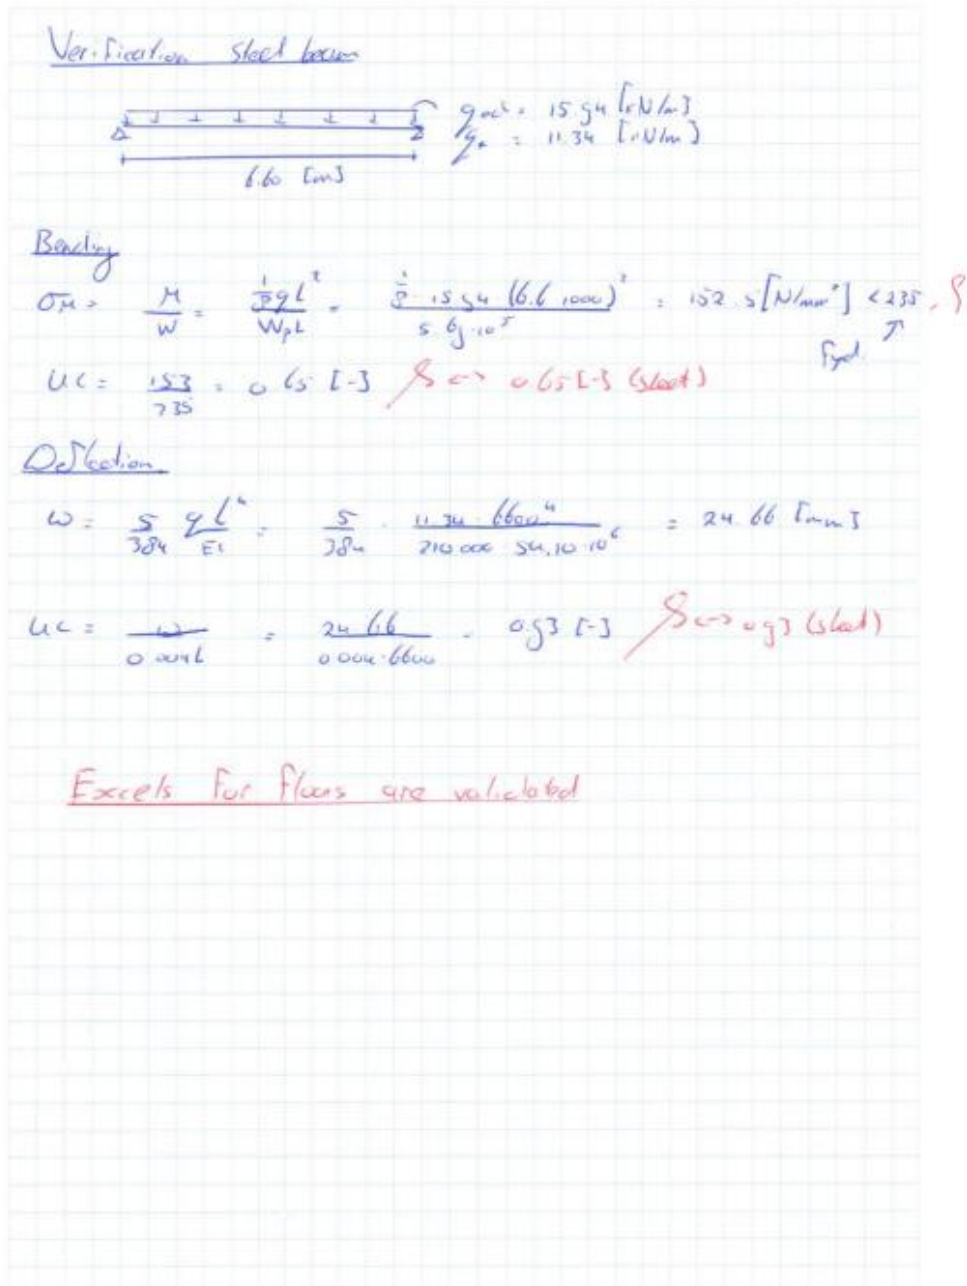 Verification steel beam
q = 15.94 [kN/m]
q = 11.34 [kN/m]
6.60 [m]
Bending
σM = M/W = 1/8 q L² / Wpl = 1/8 · 15.94 (6.6 1000)² / 5.69·10⁵ = 152.5 [N/mm²] < 235
Fyd.
UC = 153/235 = 0.65 [-] <-> 0.65 [-] (sheet)
Deflection
ω = 5/384 q L⁴/EI = 5/384 · 11.34 · 6600⁴ / 210 000 · 54.10·10⁶ = 24.66 [mm]
UC = ω / 0.004L = 24.66 / 0.004·6600 = 0.93 [-] <-> 0.93 (sheet)
Excels for floors are validated